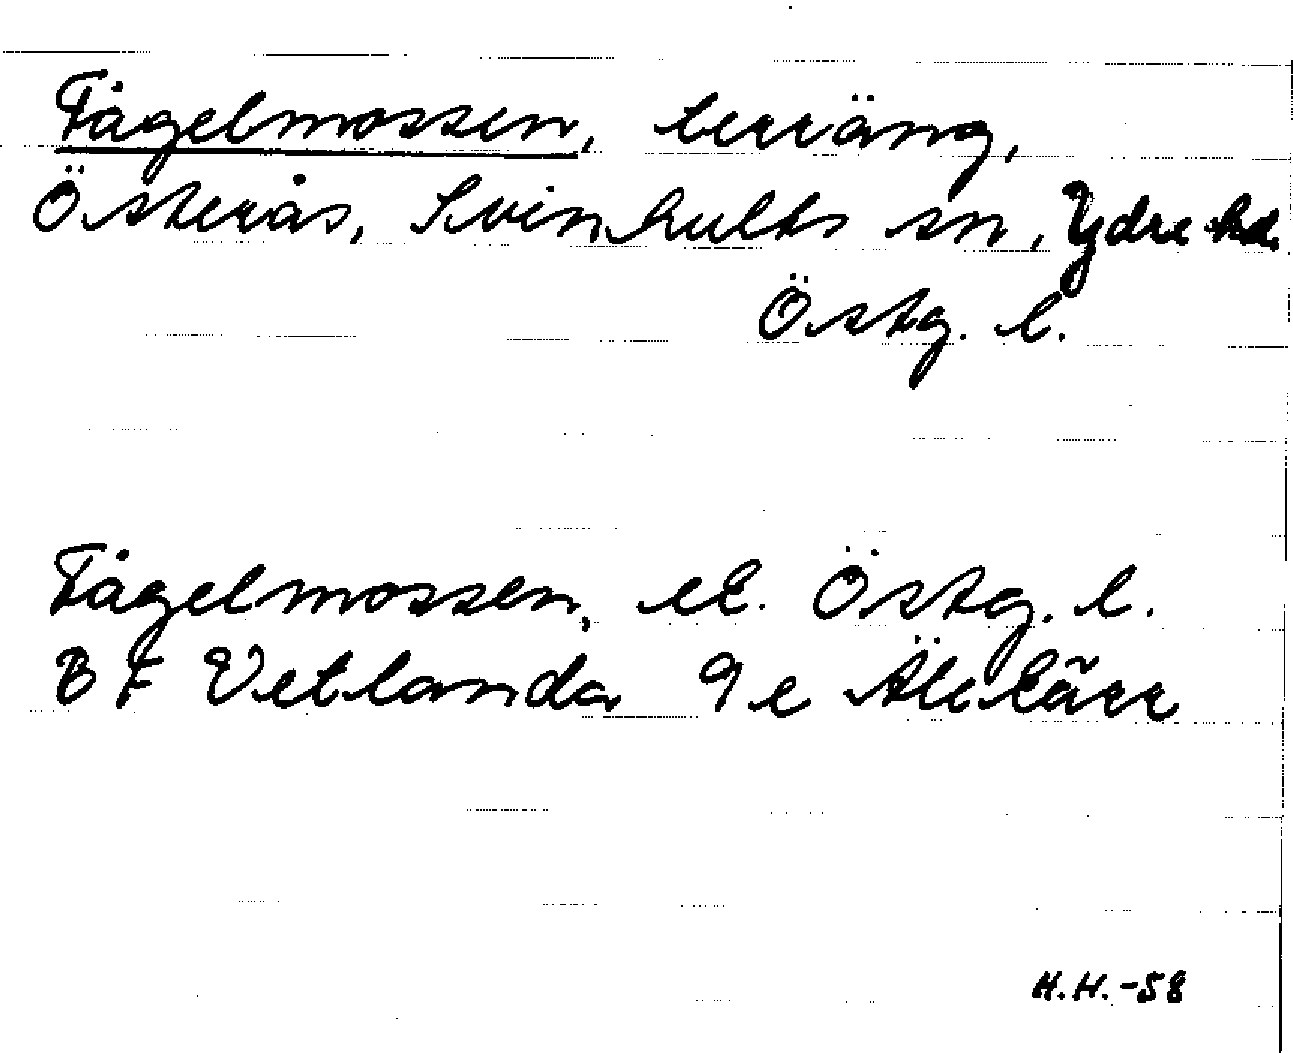 Fågelmossen, terräng,
Österås, Svinhults sn, Ydre hd.
Östg. l.
Fågelmossen, Östg. l.
7 F Vetlanda 9 e
H.H. -58